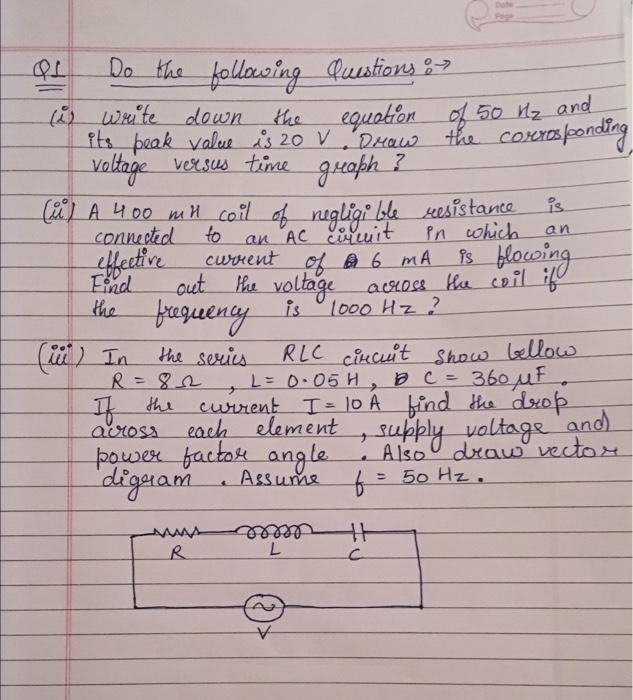 Date
Page
Q1 Do the following Questions :→
(i) Write down the equation of 50 Hz and
its peak value is 20 V. Draw the corrosponding
voltage versus time graph ?
(ii) A 400 mH coil of negligible resistance is
connected to an AC circuit in which an
effective current of 6 mA is flowing
Find out the voltage across the coil if
the frequency is 1000 Hz ?
(iii) In the series RLC circuit show bellow
R = 8 Ω , L = 0.05 H , C = 360 μF .
If the current I = 10 A find the drop
across each element , supply voltage and
power factor angle . Also draw vector
digram . Assume f = 50 Hz .
R L C
V